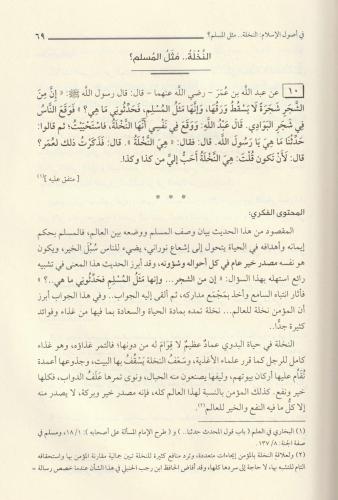 في أصول الإسلام: النخلة.. مثل المسلم؟ ٦٩
النَّخْلَةُ.. مَثَلُ المُسلم؟
١٠ عن عبد الله بن عُمَرَ - رضي الله عنهما - قال: قال رسول الله ﷺ: « إِنَّ مِنَ
الشَّجَرِ شَجَرَةً لَا يَسْقُطُ وَرَقُهَا، وَإِنَّهَا مَثَلُ المُسْلِمِ، فَحَدِّثُونِي مَا هِيَ؟ » فَوَقَعَ النَّاسُ
فِي شَجَرِ البَوَادِي. قَالَ عَبْدُ اللهِ: وَوَقَعَ فِي نَفْسِي أَنَّهَا النَّخْلَةُ، فَاسْتَحْيَيْتُ؛ ثم قالوا:
حَدِّثْنَا مَا هِيَ يَا رَسُولَ اللهِ. قال: فقال: « هِيَ النَّخْلَةُ ». قال: فَذَكَرْتُ ذلك لِعُمَر؟
قال: لَأَنْ تَكُونَ قُلْتَ: هِيَ النَّخْلَةُ أَحَبُّ إِلَيَّ من كذا وكذا.
[ متفق عليه ](١)
* * *
المحتوى الفكري:
المقصود من هذا الحديث بيان وصف المسلم ووضعه بين العالم، فالمسلم بحكم
إيمانه وأهدافه في الحياة يتحول إلى إشعاع نوراني، يضيء للناس سُبُلَ الخير، ويكون
هو نفسه مصدر خير عام في كل أحواله وشؤونه، وقد أبرز الحديث هذا المعنى في تشبيه
رائع استهله بهذا السؤال: « إن من الشجر... وإنها مثل المسلم فحدثوني ما هي..؟ »
فأثار انتباه السامع وأخذ بمَجْمَع مداركه، ثم ألقى إليه الجواب.. وفي هذا الجواب أبرز
أن المؤمن نخلة للعالم... نخلة تمده بمادة الحياة والسعادة بما فيها من غذاء وفوائد
كثيرة جدًّا..
النخلة في حياة البدوي عمادٌ عظيمٌ لا قِوامَ له من دونها؛ فالتمر غذاؤه، وهو غذاء
كامل للرجل كما قرر علماء الأغذية، وسَعَفُ النخلة يَسْقُفُ بها البيت، وجذوعها أعمدة
تُقَام عليها أركان بيوتهم، وليفها يصنعون منه الحبال، ونوى تمرها عَلَفُ الدواب، فكلها
خير ونفع. كذلك المؤمن بالنسبة لهذا العالم كله، فإنه مصدر خير وبركة، لا يصدر منه
إلا كُلُّ ما فيه النفع والخير للعالم(٢).
(١) البخاري في العلم ( باب قول المحدث حدثنا.. ) و ( طرح الإمام المسألة على أصحابه ): ١/ ١٨، ومسلم في
صفة الجنة: ٨/ ١٣٧.
(٢) ولعلاقة النخلة بالمؤمن إيحاءات متعددة، وترد منافع كثيرة للنخلة تبين جمالية مقارنة المؤمن بها واستحقاقه
التام للتشبه بها، لا حاجة إلى سردها كلها، وقد أفاض الحافظ ابن رجب الحنبلي في هذا الشأن عندما خصص رسالة =